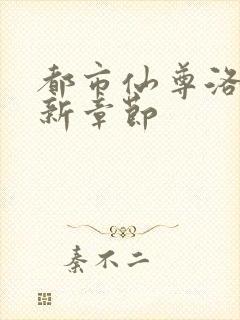 都市仙尊洛
新章节
秦不二